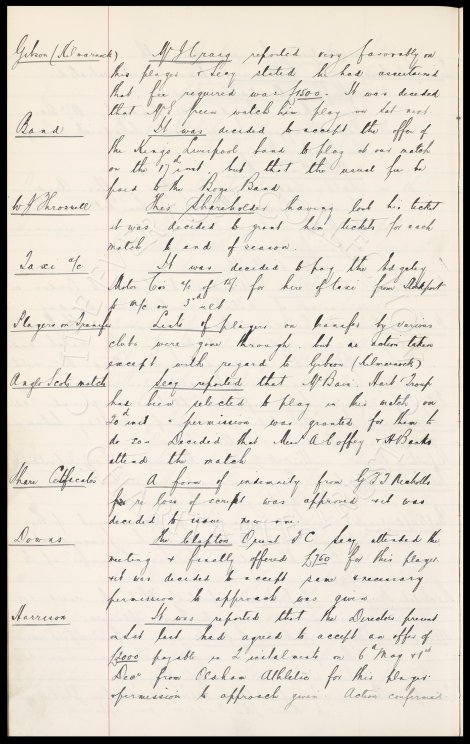 Gibson (Kilmarnock) Mr J Craig reported very favorably on
his player & Secy stated he had ascertained
that fee required was £1500. It was decided
that Mr E Green watch him play on Sat next.
Band It was decided to accept the offer of
the Kings Liverpool band to play at our match
on the 17th inst. but that the usual fee be
paid to the Boys Band
This Shareholder having lost his ticket
it was decided to grant him tickets for each
match to end of season.
Taxi a/c It was decided to pay the
Motor Car a/c of for hire of taxi from Stockport
to M/c on 3rd ult
Players on Transfer Lists of players on transfer by various
clubs were gone through. but no action taken
except with regard to Gibson (Kilmarnock)
Anglo Scots match Secy reported that McBain. Hart Troup
has been selected to play in this match on
20th inst & permission was granted for them to
do so. Decided that Messrs A Coffey & A Banks
attend the match
Share Certificates A form of indemnity from Nicholls
for re loss of script was approved & it was
decided to issue new one.
Downs The Clapton Orient F C Secy attended the
meeting & finally offered £750 for this player
& it was decided to accept same & necessary
permission to approach was given
Harrison It was reported that the Directors present
on Sat last had agreed to accept an offer of
£2000 payable in 2 instalments on 6th May & 1st
Decr from Oldham Athletic for this player
& permission to approach given. Action confirmed